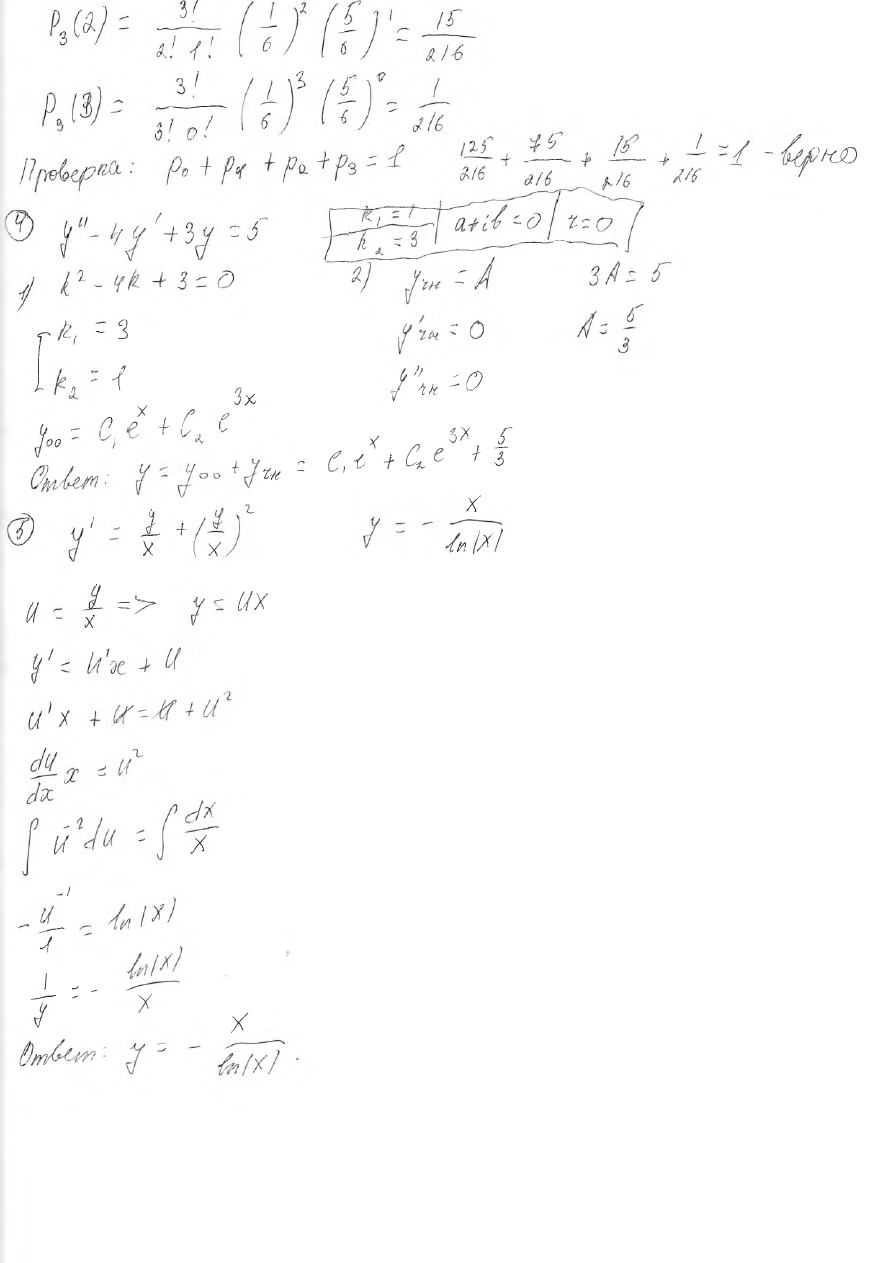 P₃(2) = 3!/(2! 1!) (1/6)² (5/6)¹ = 15/216
P₃(3) = 3!/(3! 0!) (1/6)³ (5/6)⁰ = 1/216
Проверка: p₀ + p₁ + p₂ + p₃ = 1 125/216 + 75/216 + 15/216 + 1/216 = 1 - верно
④ y'' - 4y' + 3y = 5 k₁ = 1 k₂ = 3 | a+ib = 0 | r = 0
1) k² - 4k + 3 = 0 2) yчн = A 3A = 5
[ k₁ = 3 y'чн = 0 A = 5/3
k₂ = 1 y''чн = 0
yоо = C₁e^x + C₂e^3x
Ответ: y = yоо + yчн = C₁e^x + C₂e^3x + 5/3
⑤ y' = y/x + (y/x)² y = - x/ln|x|
u = y/x => y = ux
y' = u'x + u
u'x + u = u + u²
du/dx x = u²
∫ u⁻² du = ∫ dx/x
- u⁻¹/1 = ln|x|
1/y = - ln|x|/x
Ответ: y = - x/ln|x| .